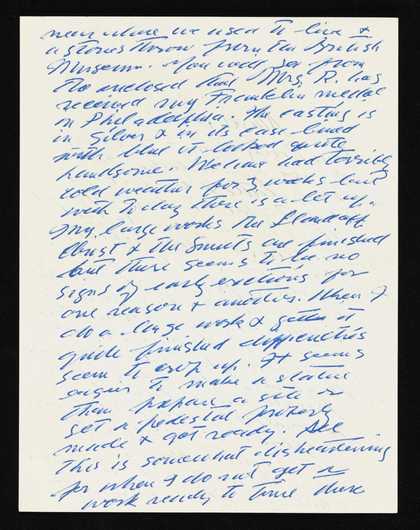 near where we used to live &
a stones throw from the British
Museum. You will see from
the enclosed that Mrs. R. has
received my Franklin medal
in Philadelphia. The casting is
in silver & in its case lined
with blue it looked quite
handsome. We have had terribly
cold weather for 3 weeks but
with today there is a let up.
My large works the
Christ & the Saints are finished
but there seems to be no
signs of early erections for
one reason & another. When I
do a large work & gets it
quite finished difficulties
seem to crop up. It seems
easier to make a statue
than prepare a site or
get a pedestal properly
made & got ready. All
this is somewhat disheartening
for when I do not get a
work ready to time there